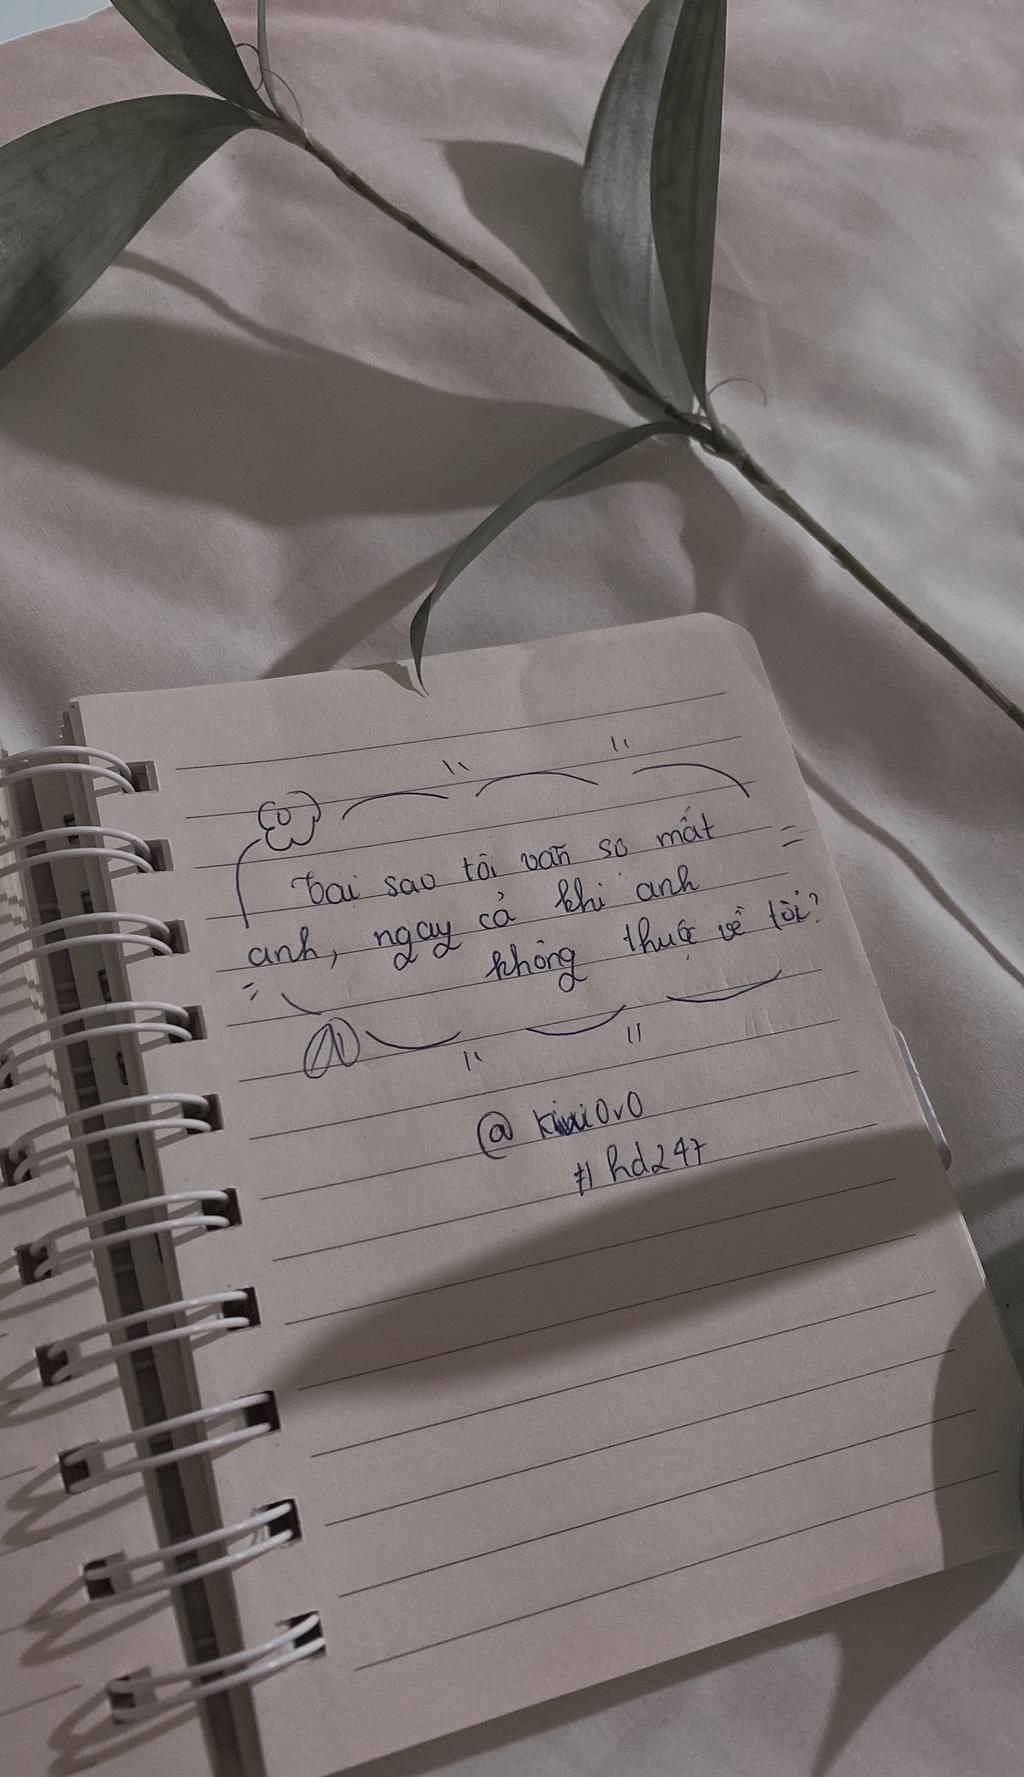 Tại sao tôi vẫn sợ mất
anh, ngay cả khi anh
không thuộc về tôi?
@ kiwi0v0
# hd247